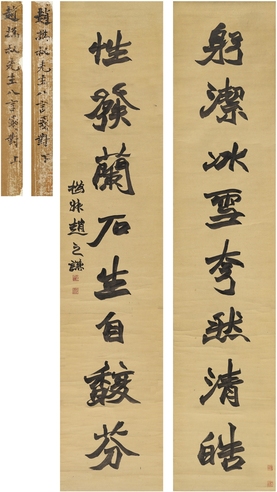 躬潔冰雪夸然清皓
性發蘭石生自馥芬
撝叔趙之謙
趙撝叔先生八言真對 上
趙撝叔先生八言真對 下